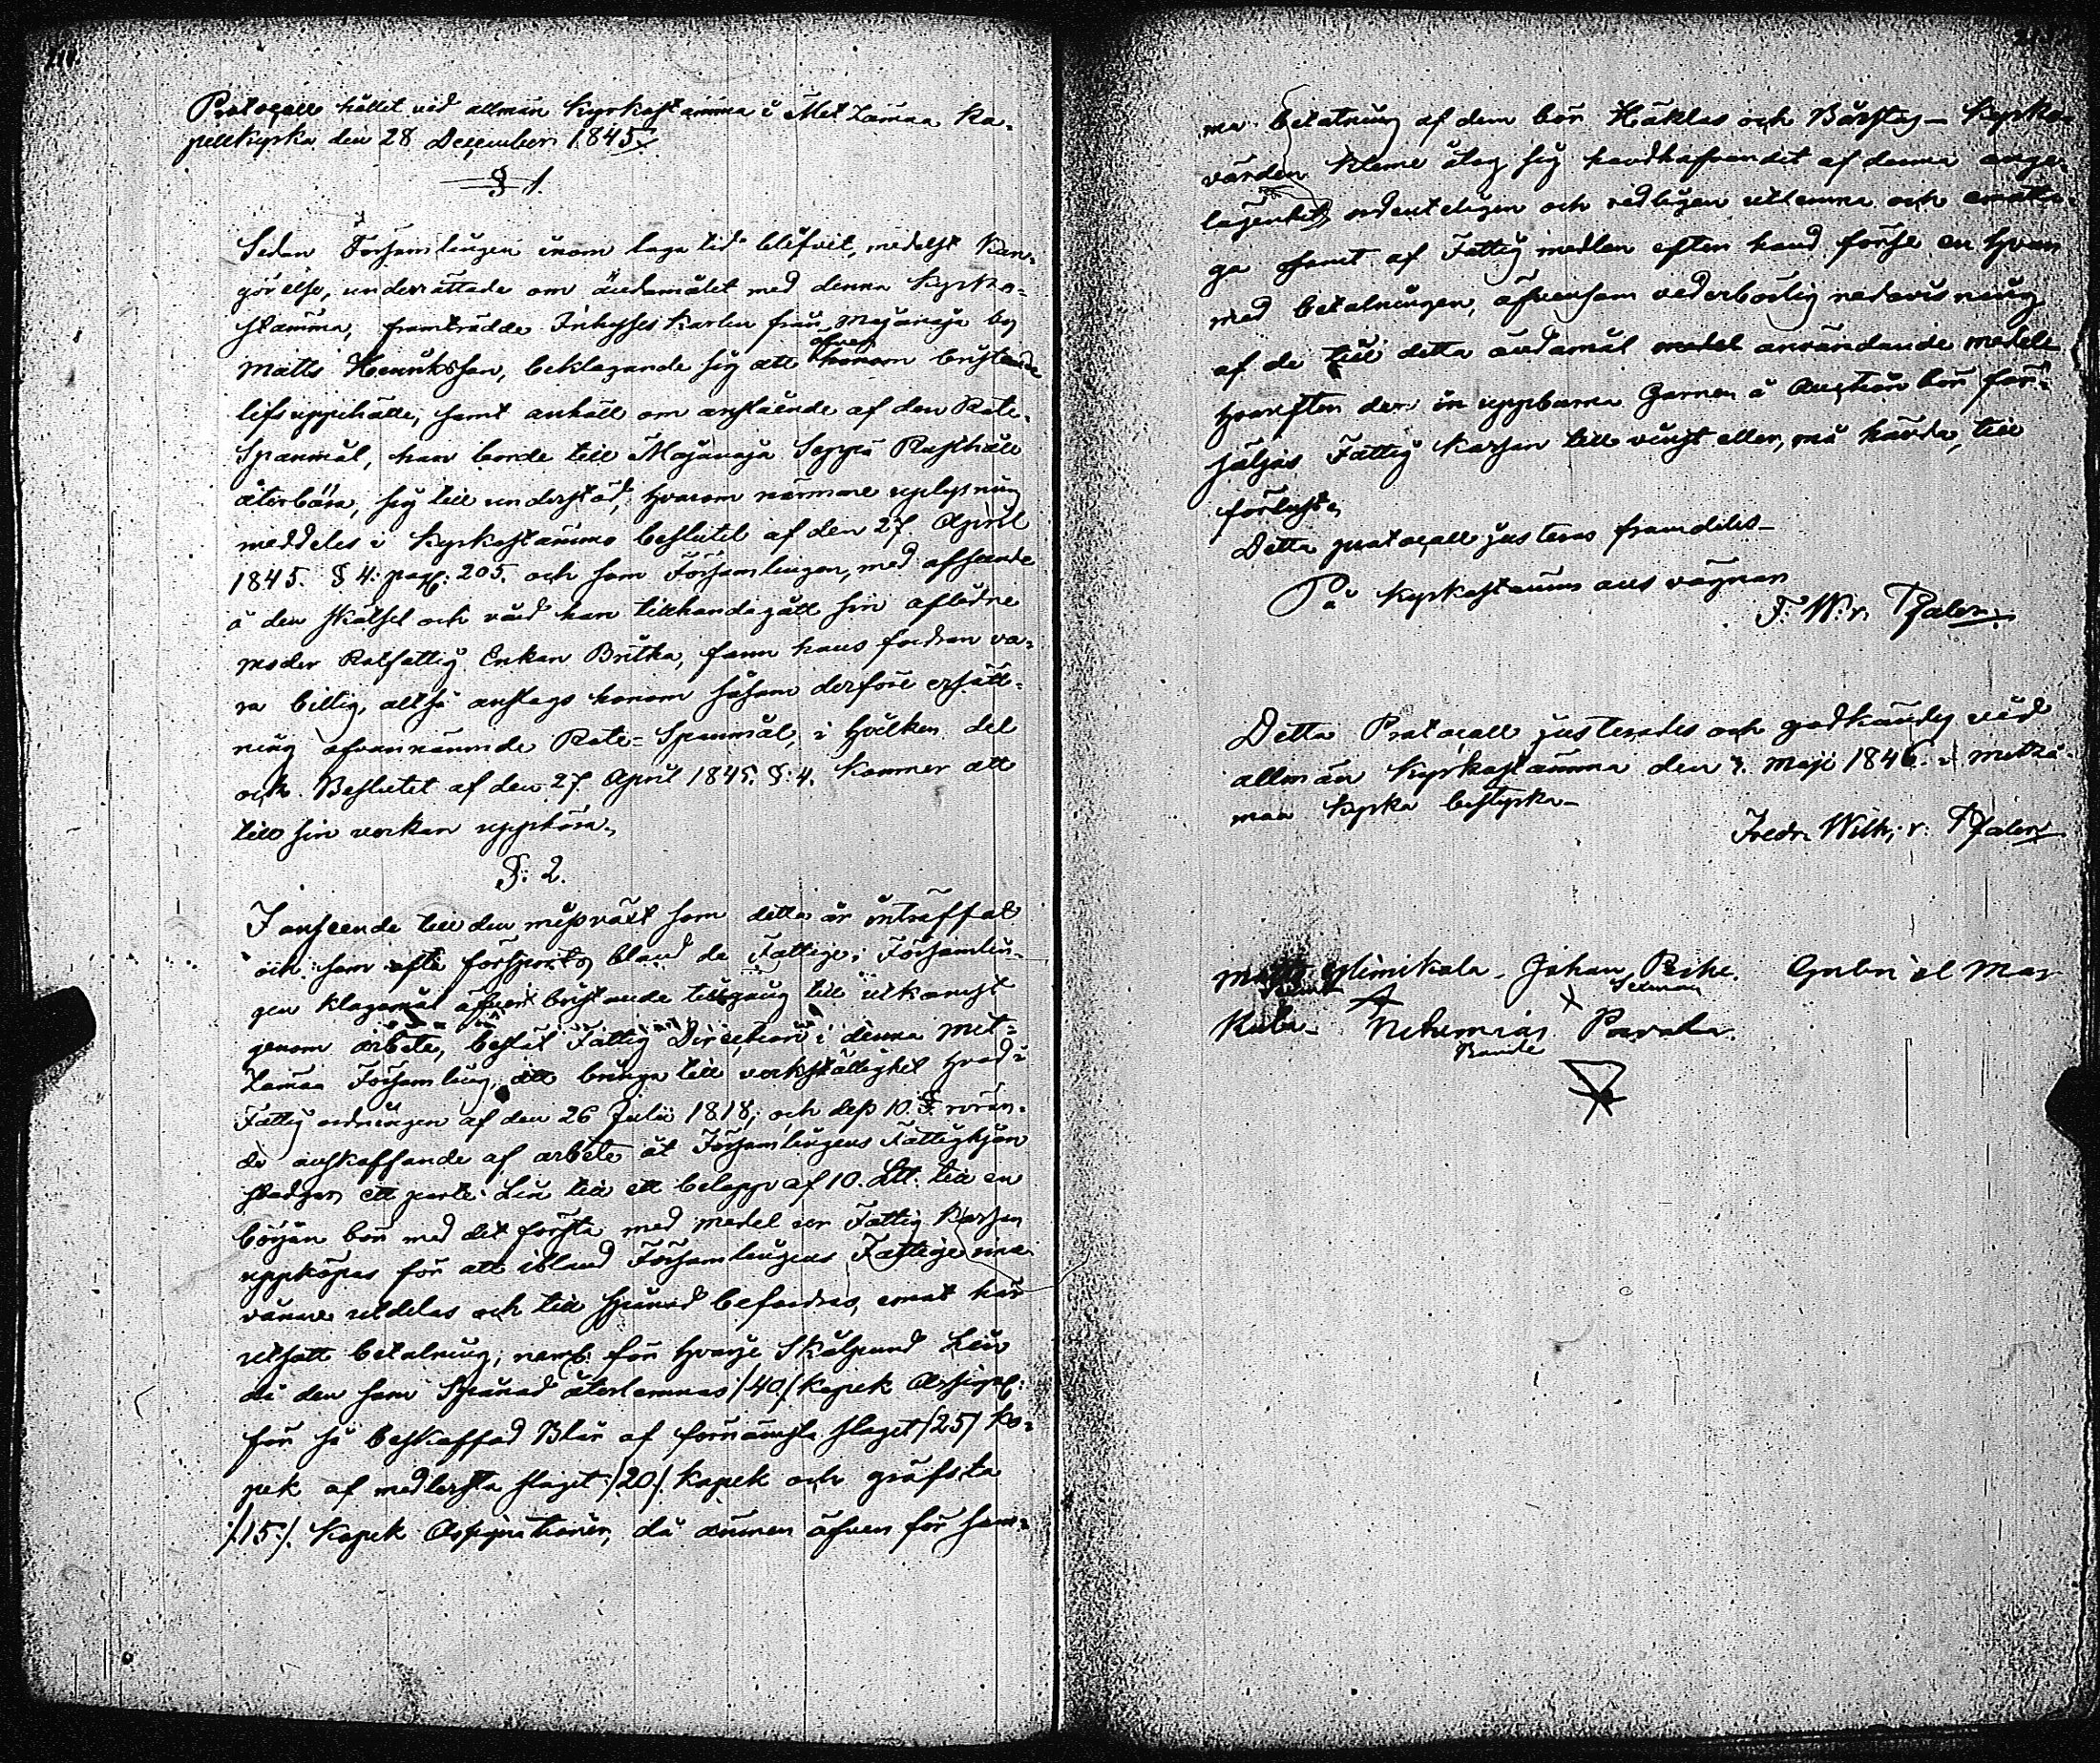 Protocoll hållet vid allmän Kyrkostämma i Metzämaa Ka-
pellkyrka den 28 December 1845.
§ 1.
Sedan Församlingen inom laga tid blifvit, medelst Kun-
görelse, underrättade om ändamålet med denna Kyrko-
stämma, framträdde Inhyses Karlen från Majanaja by
Matts Henriksson, beklagande sig att öfver bristande
lifsuppehälle, samt anhöll om anstående af den Rote-
Spanmål, han borde till Majanaja Seppä Rusthåll
återbära, sig till understöd, hvarom närmare uplysning
meddeles i Kyrkostämmo beslutet af den 27 April
1845. § 4. pag: 205. och som Församlingen, med afseende
å den skötsel och vård han tillhandagått sin aflidne
moder Rotfattig Enkan Britka, fann hans fordran va-
ra billig, altså anslags honom såsom derföre ersätt-
ning ofvannämnde Rote-Spanmål, i hvilken del
och Beslutet af den 27. April 1845. §: 4. kommer att
till sin verkan upphöra.
§: 2.
I anseende till den missväxt som detta år inträffat
och som ofta försports bland de Fattige i Församlin-
gen klagomål öfver bristande tillgång till utkomst
genom arbete, beslöt Fattig Direction i denna Met-
zämaa Församling, att bringa till verkställighet hvad i
Fattig ordningen af den 26 Julii 1818, och dess 10. § röran-
de anskaffande af arbete åt Församlingens Fattighjon
stadgas ett parti Lin till ett belopp af 10. L℔. till en
början bör med det första med medel ur Fattig Kassan
uppköpas för att ibland Församlingens Fattige inne
vånare utdelas och till spånad befordras, emot här
utsatt betalning; neml: för hvarje Skålpund Lin
då den som Spånad återlemnas /40/ kopek Assign:
för så beskaffad Blår af förnämsta slaget /25/ Ko-
pek af medlersta slaget /:20:/ kopek och gröfsta
/:15:/. Kopek Assignationer, då ämnen äfven för sam-
ma betalning af dem bör Häklas och Bårstas – Kyrko-
värden Kleme åtog sig handhafvandet af denna ange-
lägenhet, ordenteligen och redligen utlemna och emotta-
ga samt af Fattig medlen efter hand förse en hvar
med betalningen, äfvensom vederbörlig redovisning
af de till detta ändamål medel användande medel
hvarefter der in uppburna Garnen å Auction bör för-
säljas Fattig Kassan till vinst eller, må hända, till
förlust.
Detta protocoll justeras framdeles –
På Kyrkostämmans vägnar
F. W. v. Pfaler.
Detta Protocoll justerades och godkändes vid
allmän Kyrkostämma den 3. Maji 1846. i Metzä-
maa kyrka bestyrka –
Fredr. Wilh: v: Pfaler
Matts Minikala – Johan Peshe. Gabriel Mar
Kula – Nehemias Pavola.
Bonde